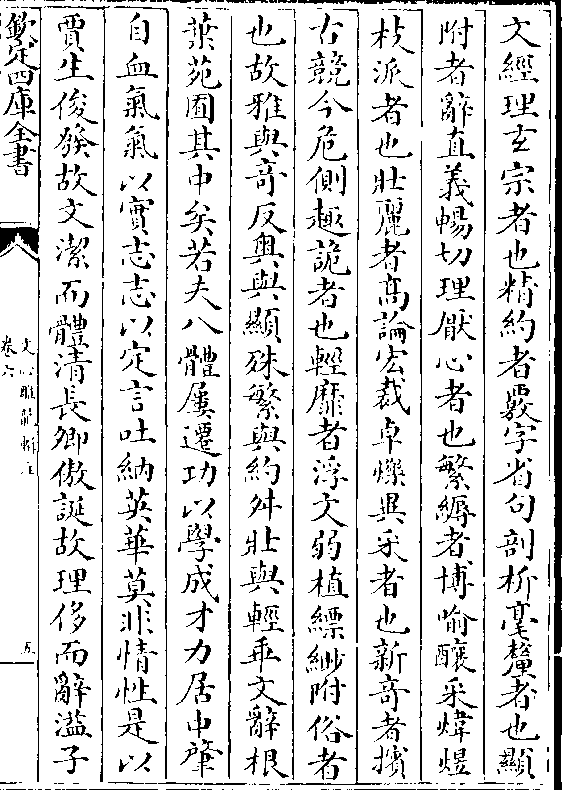 文經理玄宗者也精約者覈字省句剖析毫釐者也顯
附者辭直義暢切理厭心者也繁縟者博喻釀采煒煜
枝派者也壯麗者高論宏裁卓爍異采者也新奇者擯
古競今危側趣詭者也輕靡者浮文弱植縹緲附俗者
也故雅與奇反奥與顯殊繁與約舛壯與輕乖文辭根
葉苑囿其中矣若夫八體屢遷功以學成才力居中肇
自血氣氣以實志志以定言吐納英華莫非情性是以
賈生俊發故文潔而體清長卿傲誕故理侈而辭溢子
欽定四庫全書
文心雕龍輯注
卷六
五